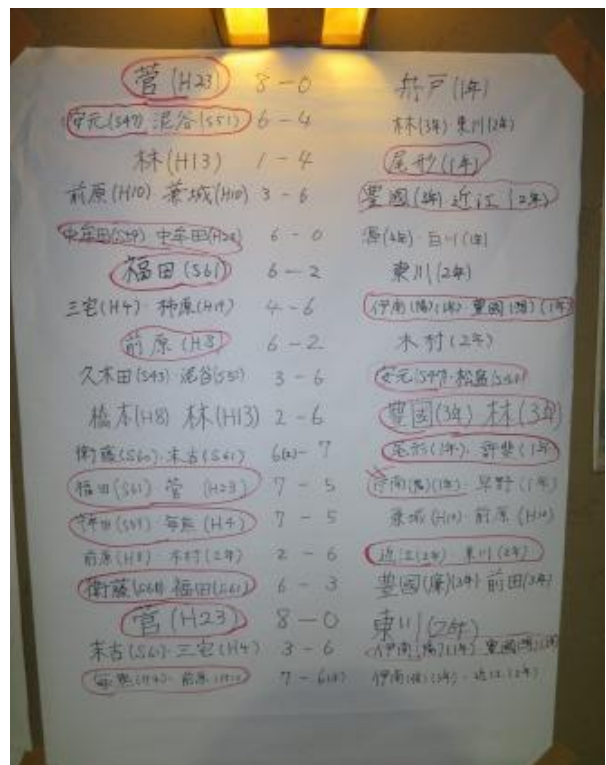 菅(H23) 8-0 舟戸(1年)
安元(S47) 泥谷(S51) 6-4 林(3年) 東川(2年)
林(H13) 1-4 尾形(1年)
前原(H10) 兼城(H10) 3-6 豊國(3年) 近江(2年)
中牟田(S59)・中牟田(H26) 6-0 (2年)・白川(1年)
福田(S61) 6-2 東川(2年)
三宅(H4)・柿原(H19) 4-6 伊南(陽)(1年)・豊國(陽)(1年)
前原(H8) 6-2 木村(2年)
久木田(S43)・泥谷(S51) 3-6 安元(S47)・松島
橋本(H8) 林(H13) 2-6 豊國(3年) 林(3年)
衛藤(S60)・末吉(S61) 6(2)-7 尾形(1年)・許斐(1年)
福田(S61) 菅(H23) 7-5 伊南(陽)(1年)・早野(1年)
中牟田(S59)・毎熊(H4) 7-5 兼城(H10)・前原(H10)
前原(H8)・木村(2年) 2-6 近江(2年)・東川(2年)
衛藤(S60) 福田(S61) 6-3 豊國(廉)(3年) 前田(3年)
菅(H23) 8-0 東川(2年)
末吉(S61)・三宅(H4) 3-6 伊南(陽)(1年) 豊國(陽)(1年)
毎熊(H4)・前原(H10) 7-6 伊南(3年)・近江(2年)